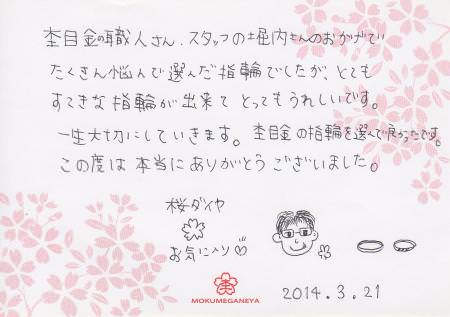 杢目金の職人さん、スタッフの堀内さんのおかげで
たくさん悩んで選んだ指輪でしたが、とても
すてきな指輪が出来てとってもうれしいです。
一生大切にしていきます。杢目金の指輪を選んで良かったです。
この度は本当にありがとうございました。
桜ダイヤ
お気に入り
MOKUMEGANEYA
2014.3.21